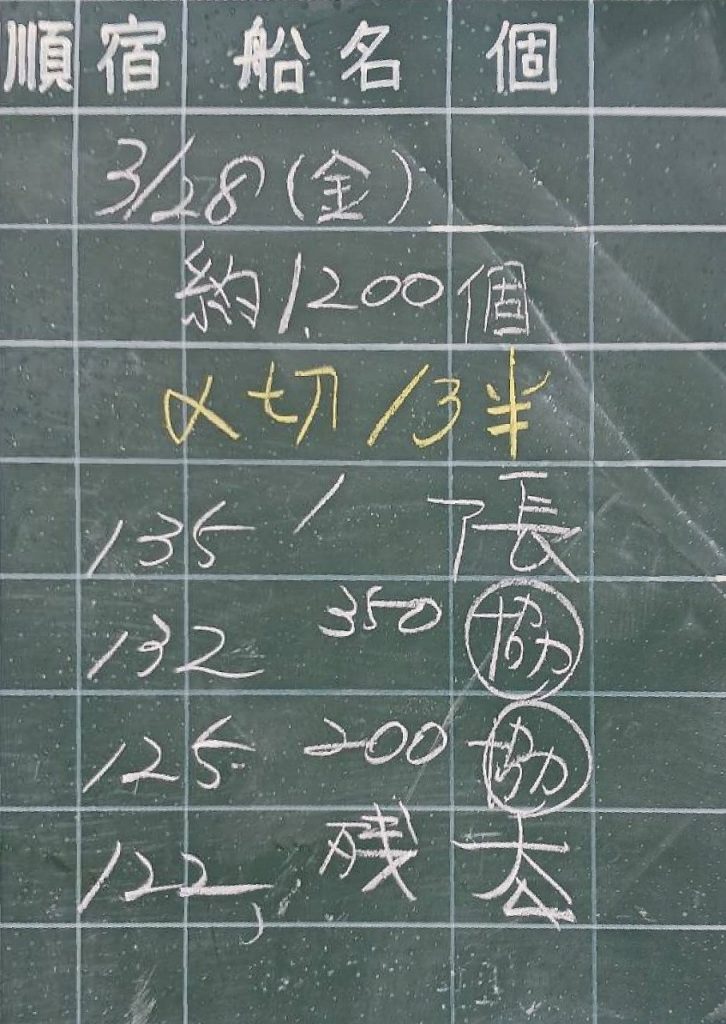 順 宿 船名 個
3/28(金)
約1,200個
〆切 13半
135 1 张
132 350 ㊿協
125 200 協
122 残